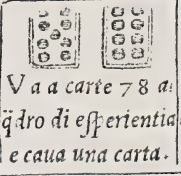 Va a carte 78 al
q̃dro di eſperientia
e caua una carta.